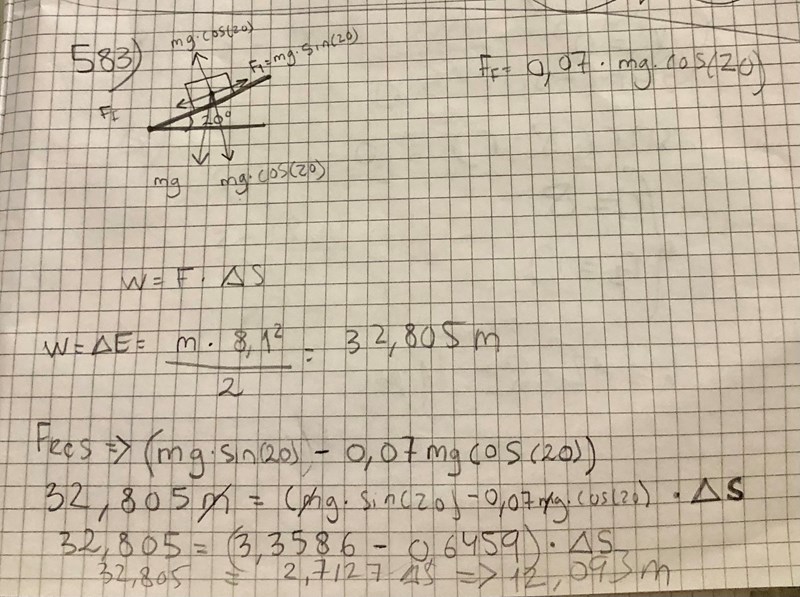 583)
mg·cos(20)
F₁=mg·sin(20)
20°
mg
mg·cos(20)
F_F = 0,07 · mg·cos(20)
W = F · ΔS
W = ΔE = m · 8,1² / 2 = 32,805 m
F_RES => (mg·sin(20) - 0,07 mg cos(20))
32,805 m = (mg·sin(20) - 0,07 mg·cos(20)) · ΔS
32,805 = (3,3586 - 0,6459) · ΔS
32,805 = 2,7127 ΔS => 12,093 m